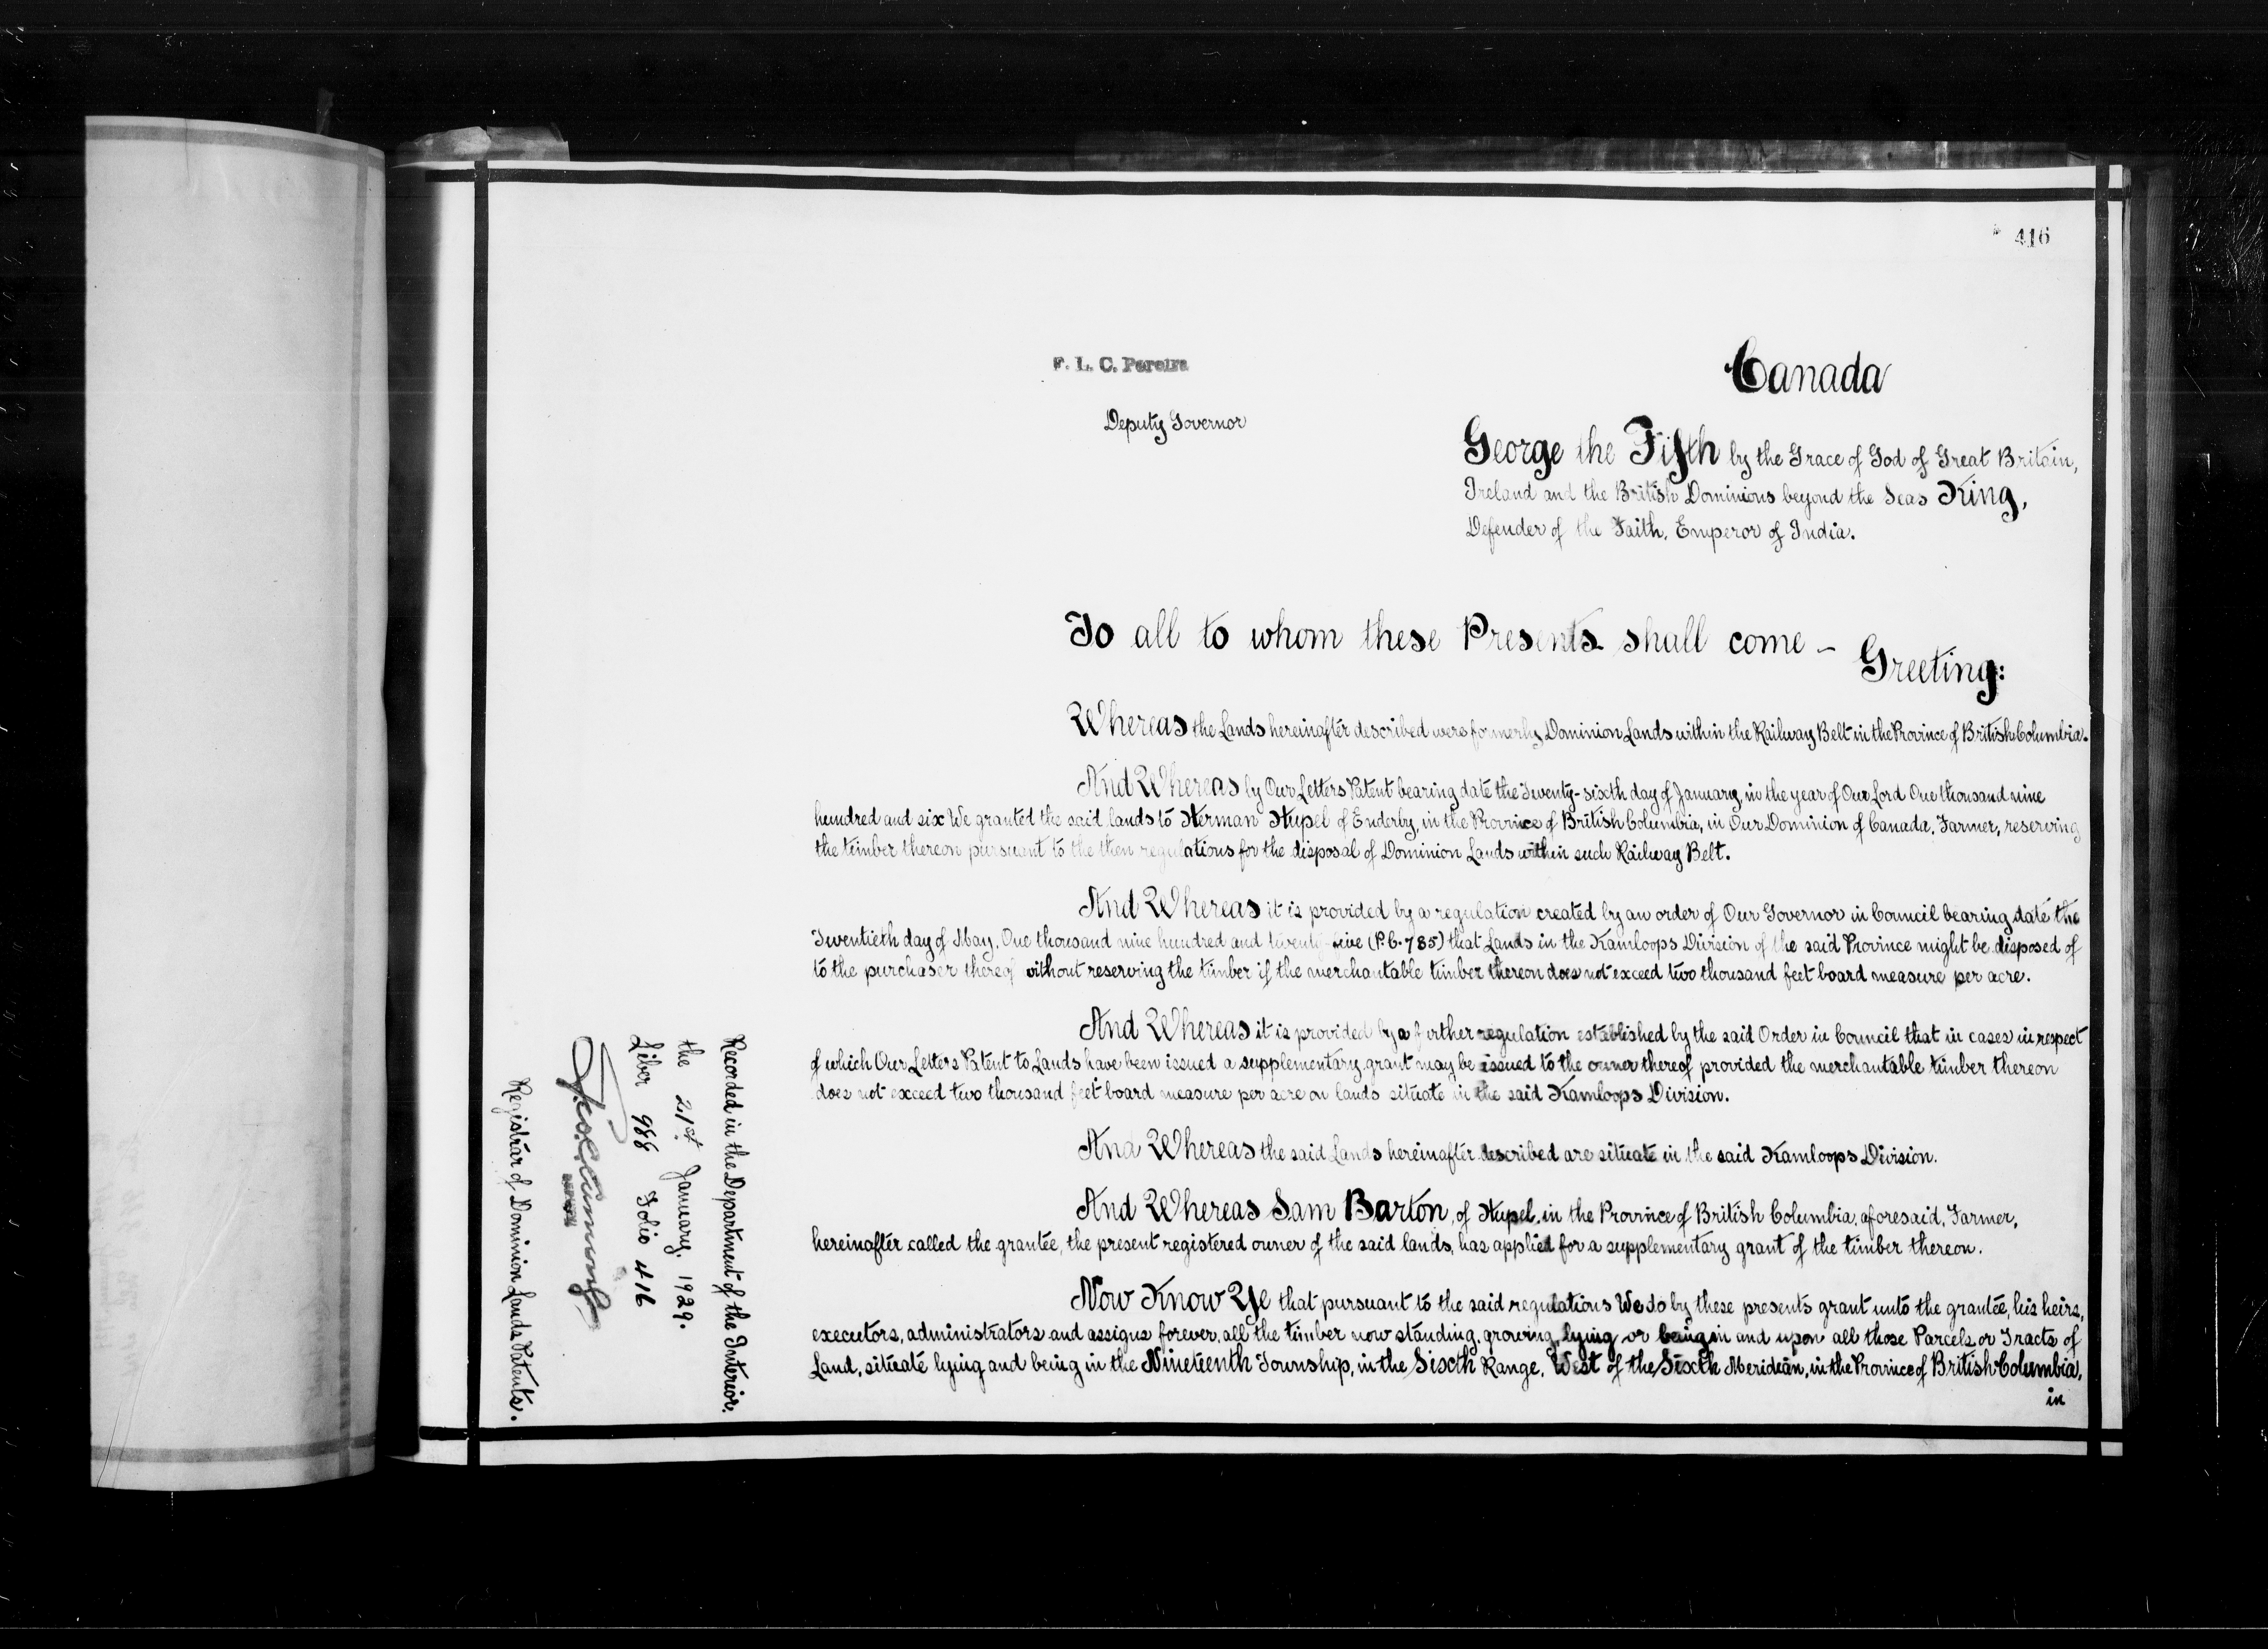 416
F. L. C. Pereira
Deputy Governor
Canada
George the Fifth by the Grace of God of Great Britain,
Ireland and the British Dominions beyond the Seas King,
Defender of the Faith, Emperor of India.
To all to whom these Presents shall come – Greeting:
Whereas the Lands hereinafter described were formerly Dominion Lands within the Railway Belt in the Province of British Columbia.
And Whereas by Our Letters Patent bearing date the Twenty-sixth day of January, in the year of Our Lord One thousand nine
hundred and six We granted the said lands to Herman Hupel of Enderby, in the Province of British Columbia, in Our Dominion of Canada, Farmer, reserving
the timber thereon pursuant to the then regulations for the disposal of Dominion Lands within such Railway Belt.
And Whereas it is provided by a regulation created by an order of Our Governor in Council bearing date the
Twentieth day of May, One thousand nine hundred and twenty-five (P.C. 785) that Lands in the Kamloops Division of the said Province might be disposed of
to the purchaser thereof without reserving the timber if the merchantable timber thereon does not exceed two thousand feet board measure per acre.
And Whereas it is provided by a further regulation established by the said Order in Council that in cases in respect
of which Our Letters Patent to Lands have been issued a supplementary grant may be issued to the owner thereof provided the merchantable timber thereon
does not exceed two thousand feet board measure per acre on lands situate in the said Kamloops Division.
And Whereas the said Lands hereinafter described are situate in the said Kamloops Division.
And Whereas Sam Barton, of Hupel, in the Province of British Columbia, aforesaid, Farmer,
hereinafter called the grantee, the present registered owner of the said lands, has applied for a supplementary grant of the timber thereon.
Now Know Ye that pursuant to the said regulations We do by these presents grant unto the grantee, his heirs,
executors, administrators and assigns forever, all the timber now standing, growing, lying or being in and upon all those Parcels or Tracts of
Land, situate lying and being in the Nineteenth Township, in the Sixth Range, West of the Sixth Meridian, in the Province of British Columbia,
in
Recorded in the Department of the Interior.
the 21st January, 1929.
Liber 988 Folio 416
Registrar of Dominion Lands Patents.